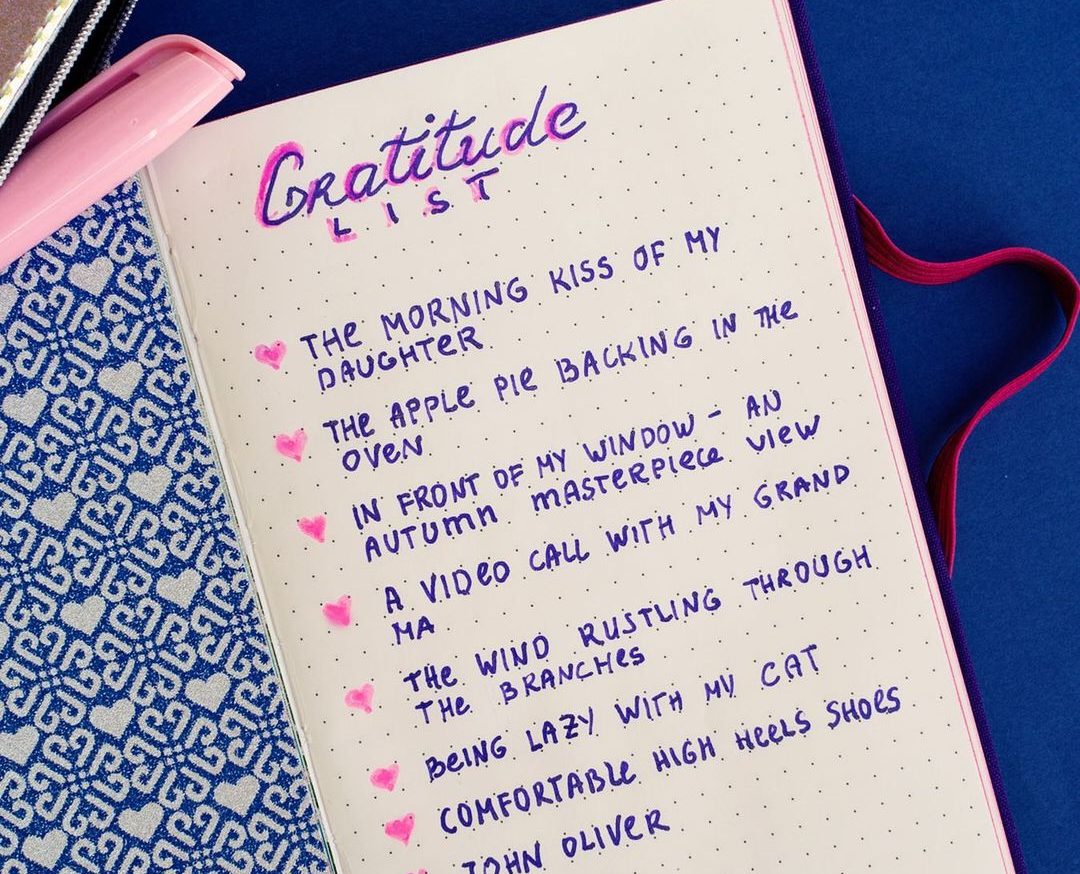 Gratitude
LIST
THE MORNING KISS OF MY
DAUGHTER
THE APPLE PIE BACKING IN THE
OVEN
IN FRONT OF MY WINDOW - AN
AUTUMN MASTERPIECE VIEW
A VIDEO CALL WITH MY GRAND
MA
THE WIND RUSTLING THROUGH
THE BRANCHES
BEING LAZY WITH MY CAT
COMFORTABLE HIGH HEELS SHOES
JOHN OLIVER